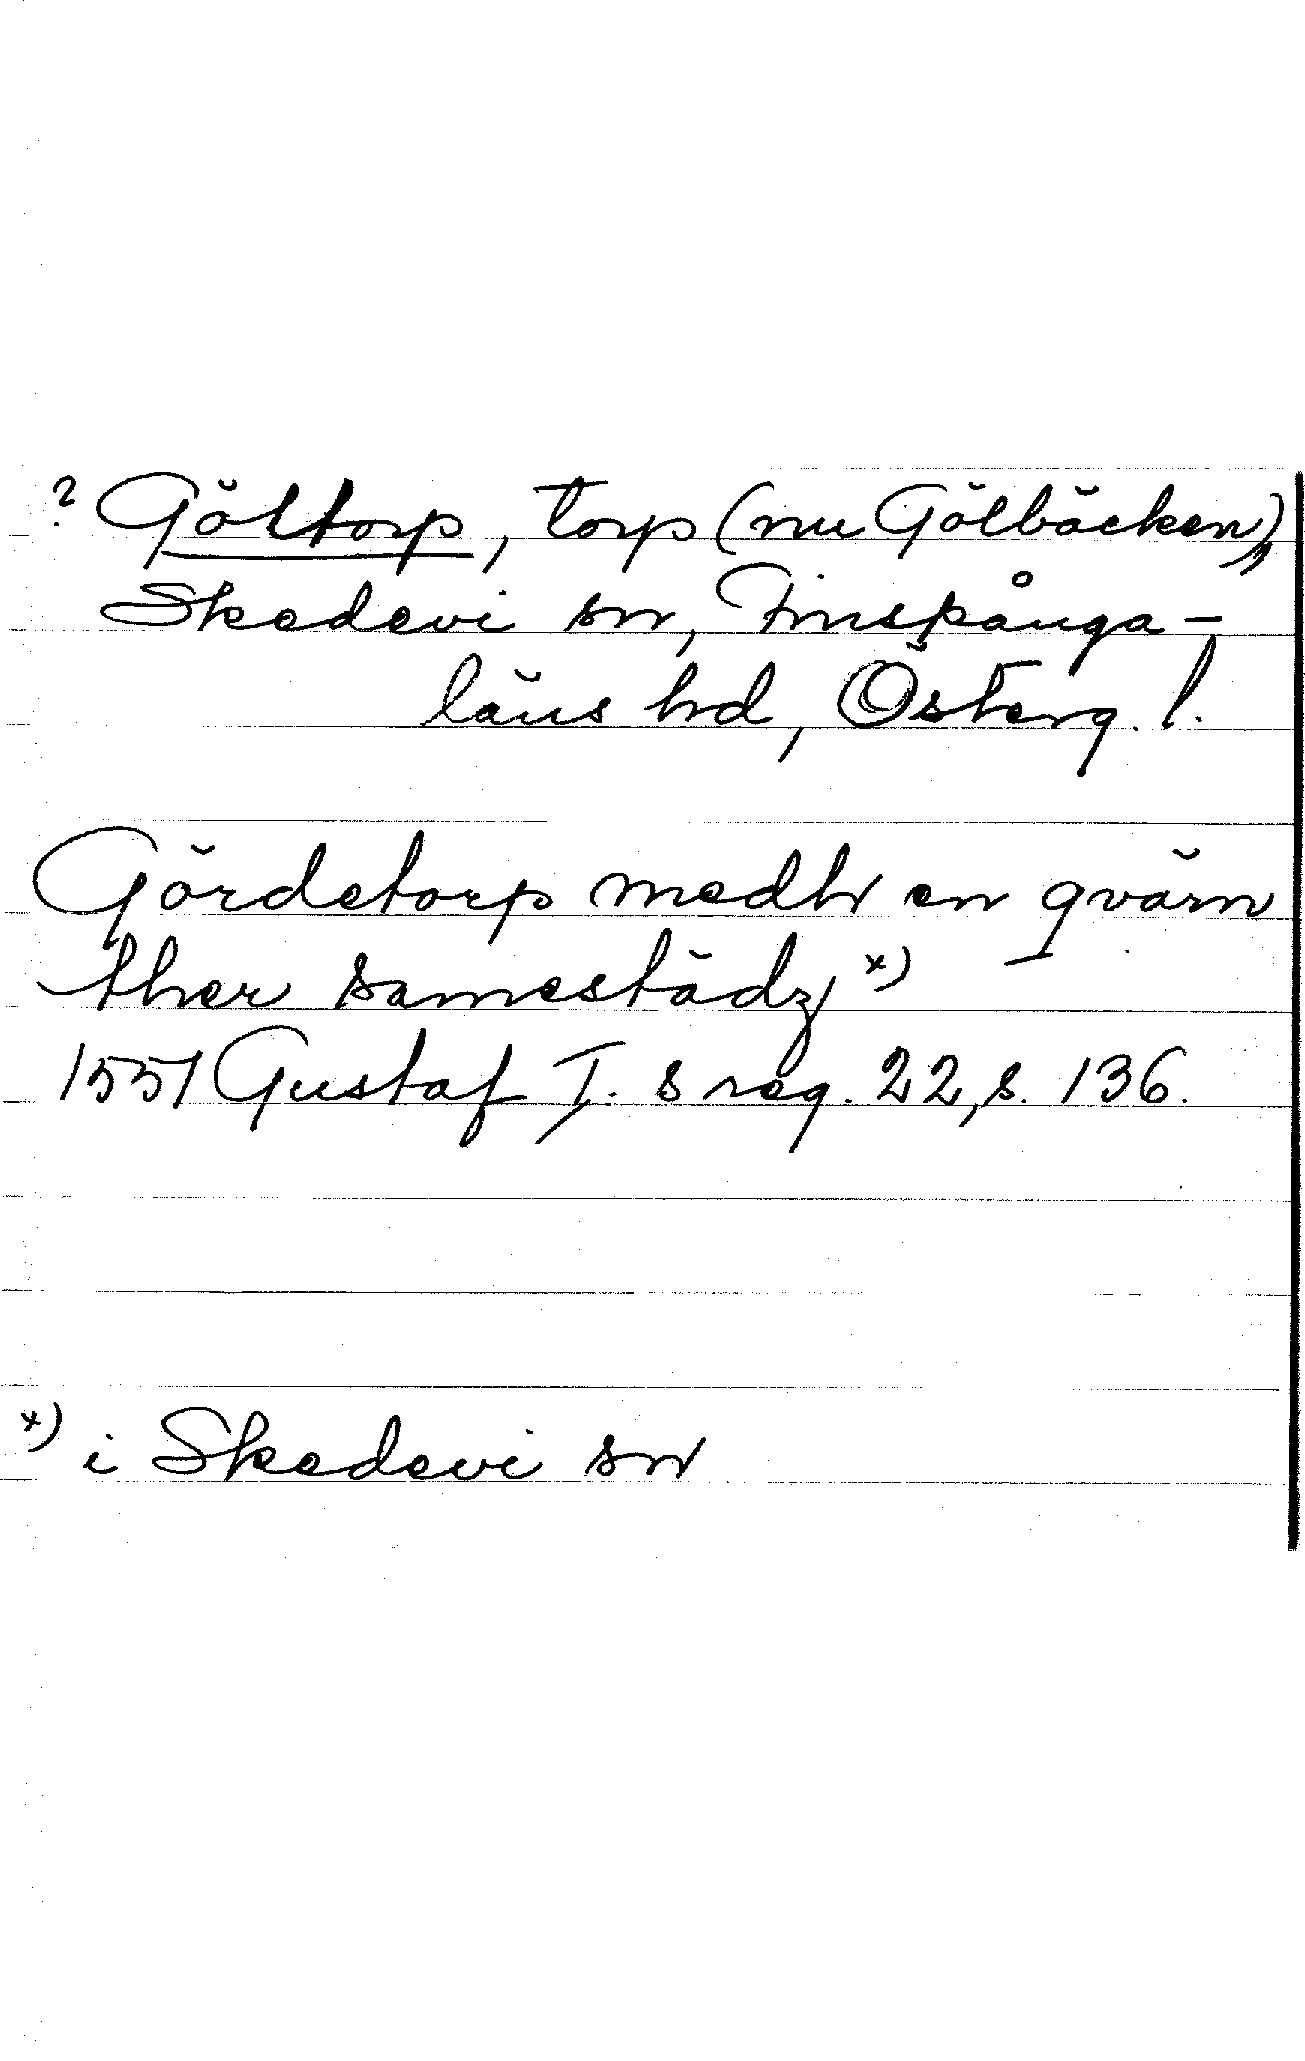 ? Göltorp, torp (nu Gölbäcken),
Skedevi sn, Finspånga-
läns hd, Österg. l.
Gördetorp medh en qvärn
ther samestädz x)
1551 Gustaf I. s reg. 22, s. 136.
x) i Skedevi sn